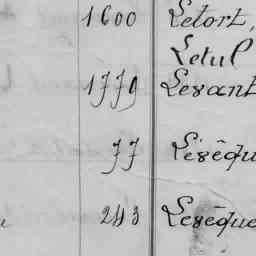 1600 Letort,
Letul
1779 Levant
77 Lévêqu
243 Levêque